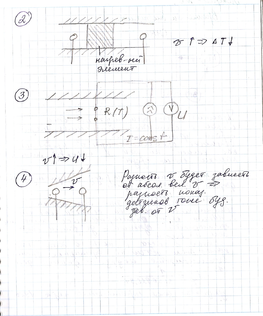 2
нагрев-ный
элемент
v ↑ ⇒ ΔT↓
3
R(T)
V
U
I = const
v↑ ⇒ U↓
4
v
Разность v будет зависеть
от абсол вел. v ⇒
разность показ.
датчиков тоже буд.
зав. от v